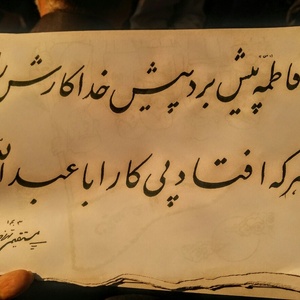 فاطمه پیش برد پیش خدا کارش را
هر که افتاد پی کار اباعبدالله